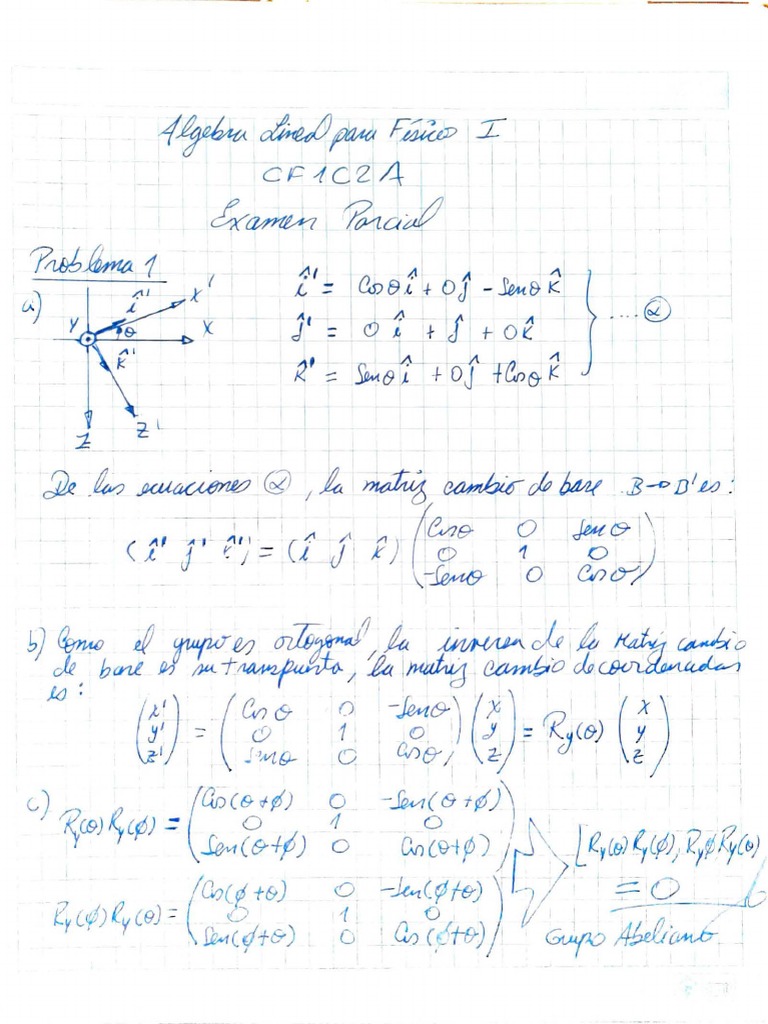 Algebra Lineal para Físicos I
CF1C2A
Examen Parcial
Problema 1
a)
Y X' X Z Z' î' k̂' θ
î' = Cosθ î + 0ĵ - Senθ k̂
ĵ' = 0 î + ĵ + 0k̂ } .... (α)
k̂' = Senθ î + 0ĵ + Cosθ k̂
De las ecuaciones (α), la matriz cambio de base B→B' es:
(î' ĵ' k̂') = (î ĵ k̂) ( Cosθ 0 Senθ
0 1 0
-Senθ 0 Cosθ )
b) Como el grupo es ortogonal, la inversa de la Matriz cambio
de base es su transpuesta, la matriz cambio de coordenadas
es:
(x' y' z') = ( Cosθ 0 -Senθ
0 1 0
Senθ 0 Cosθ ) (x y z) = Ry(θ) (x y z)
c)
Ry(θ)Ry(ϕ) = ( Cos(θ+ϕ) 0 -Sen(θ+ϕ)
0 1 0
Sen(θ+ϕ) 0 Cos(θ+ϕ) )
Ry(ϕ)Ry(θ) = ( Cos(ϕ+θ) 0 -Sen(ϕ+θ)
0 1 0
Sen(ϕ+θ) 0 Cos(ϕ+θ) )
[Ry(θ)Ry(ϕ), RyϕRy(θ)
= 0
Grupo Abeliano